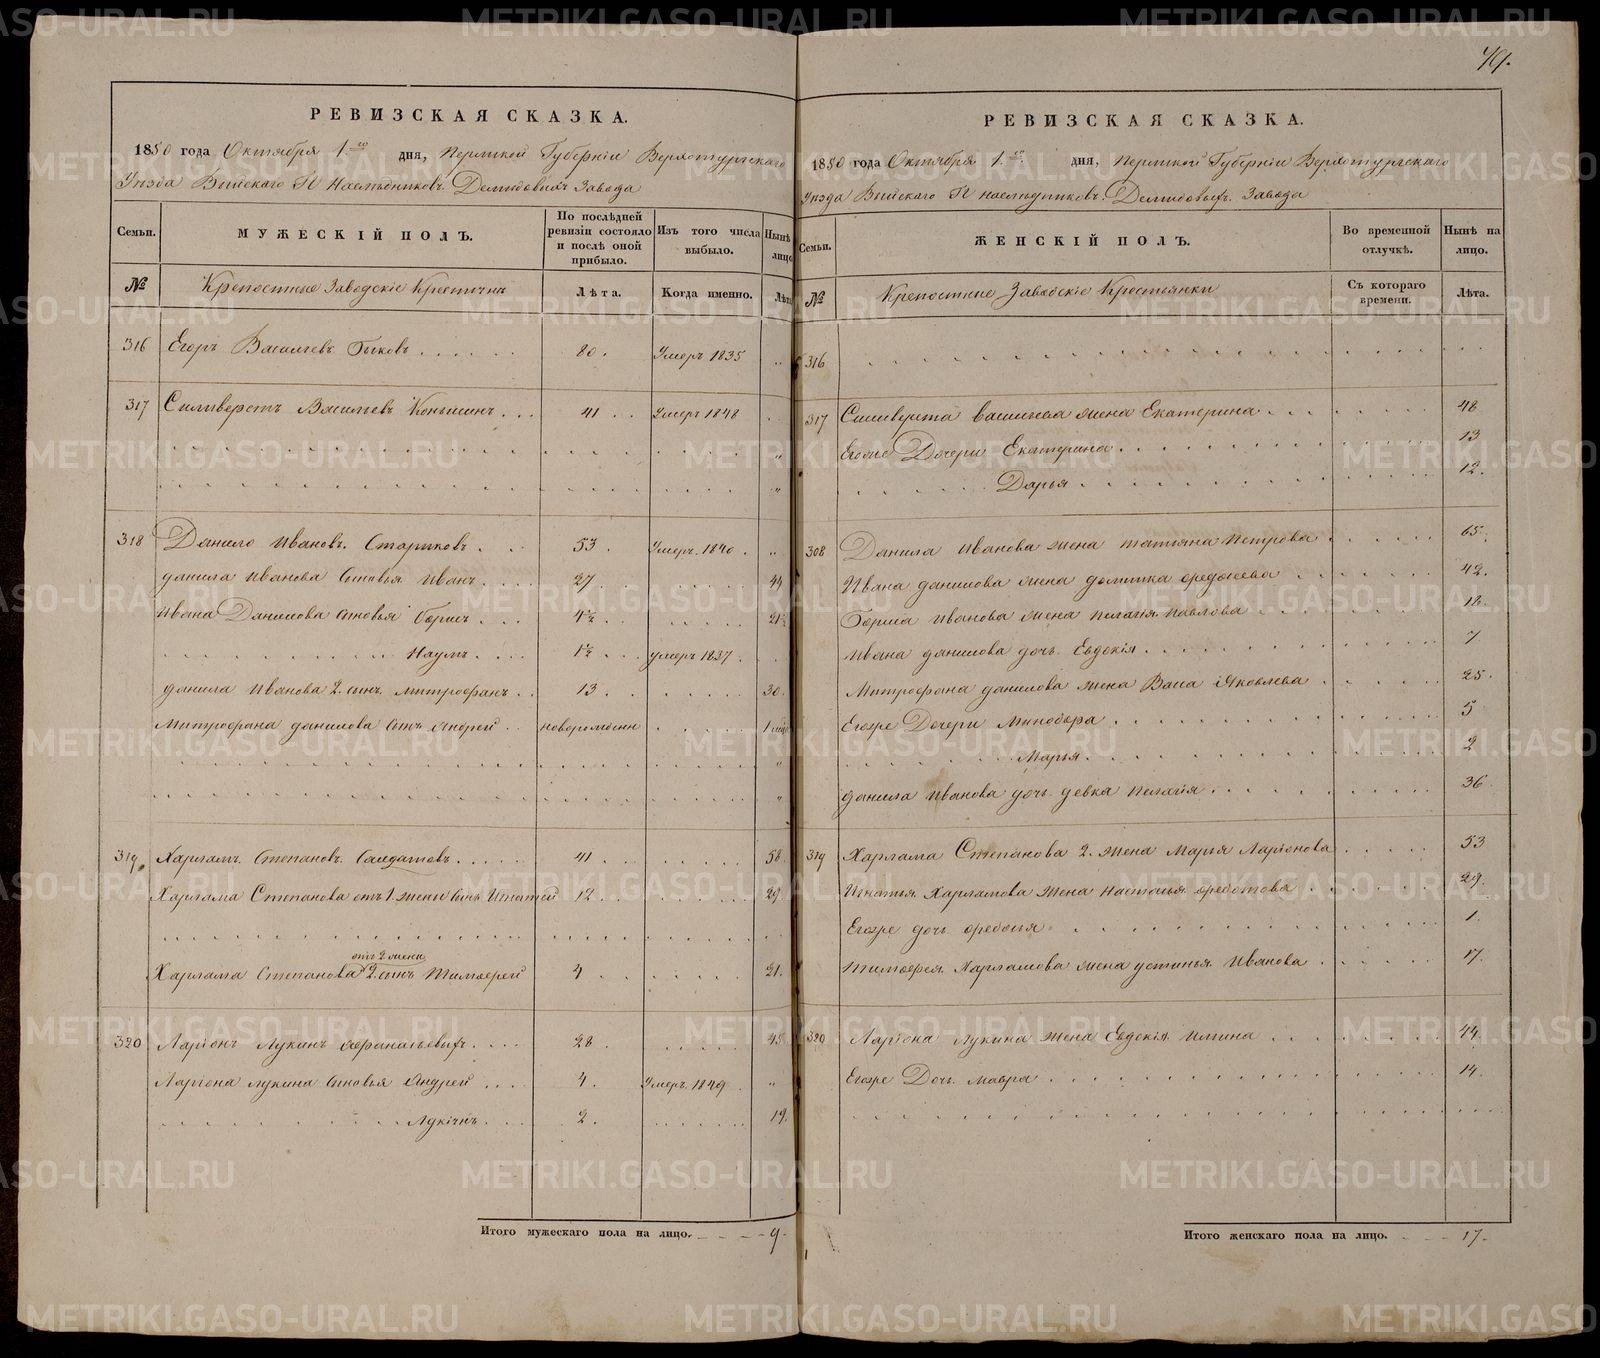 РЕВИЗСКАЯ СКАЗКА.
1850 года Октября 1го дня, Пермской Губерніи Верхотурскаго
Уѣзда Выйскаго Гг Наслѣдниковъ Демидовыхъ Завода
Семьи. МУЖЕСКІЙ ПОЛЪ. По послѣдней ревизіи состояло и послѣ оной прибыло. Изъ того числа выбыло. Нынѣ на лицо
№ Крепостные Заводскіе Крестьяне Лѣта. Когда именно. Лѣта
316 Егоръ Васильевъ Быковъ 80. Умеръ 1835
317 Силиверстъ Васильевъ Коньшинъ 41 Умеръ 1848
318 Данило Ивановъ Стариковъ 53. Умеръ 1840
Данила Иванова Сыновья Иванъ 27 44
Ивана Данилова Сыновья Борисъ 4½ 21½
Наумъ 1½ умеръ 1837
Данила Иванова 2. сынъ Митрофанъ 13 30
Митрофана Данилова Сынъ Андрей новорожденъ 1 мѣс
319. Харламъ Степановъ Салдатовъ 41 58
Харлама Степанова отъ 1. жены Сынъ Игнатей 12 29
отъ 2 жены
Харлама Степанова 2. сынъ Тимофей 4 21.
320 Ларіонъ Лукинъ Афанасьевыхъ 28 45
Ларіона Лукина Сыновья Андрей 4. Умеръ 1849
Лукіянъ 2. 19.
Итого мужескаго пола на лицо. 9
49.
РЕВИЗСКАЯ СКАЗКА.
1850 года Октября 1го дня, Пермской Губерніи Верхотурскаго
Уѣзда Выйскаго Гг наслѣдниковъ Демидовыхъ Завода
Семьи. ЖЕНСКІЙ ПОЛЪ. Во временной отлучкѣ. Нынѣ на лицо.
№ Крепостные Заводскіе Крестьянки Съ котораго времени. Лѣта.
316
317 Силиверста Васильева жена Екатерина 48
Егоже Дочери Екатерина 13
Дарья 12.
308 Данила Иванова жена Татьяна Петрова 65.
Ивана Данилова жена Домника Федосеева 42.
Бориса Иванова жена Пелагія Павлова 18
Ивана Данилова дочь Евдокія 7
Митрофана Данилова жена Васса Яковлева 25.
Егоже Дочери Минодора 5
Марья 2
Данила Иванова дочь девка Пелагія 36
319 Харлама Степанова 2. жена Марья Ларіонова 53
Игнатья Харламова жена Настасья Федотова 29.
Егоже дочь Федосья 1.
Тимофея Харламова жена Устинья Иванова 17.
320 Ларіона Лукина жена Евдокія Ильина 44
Егоже Дочь Мавра 14.
Итого женскаго пола на лицо. 17.
METRIKI.GASO-URAL.RU